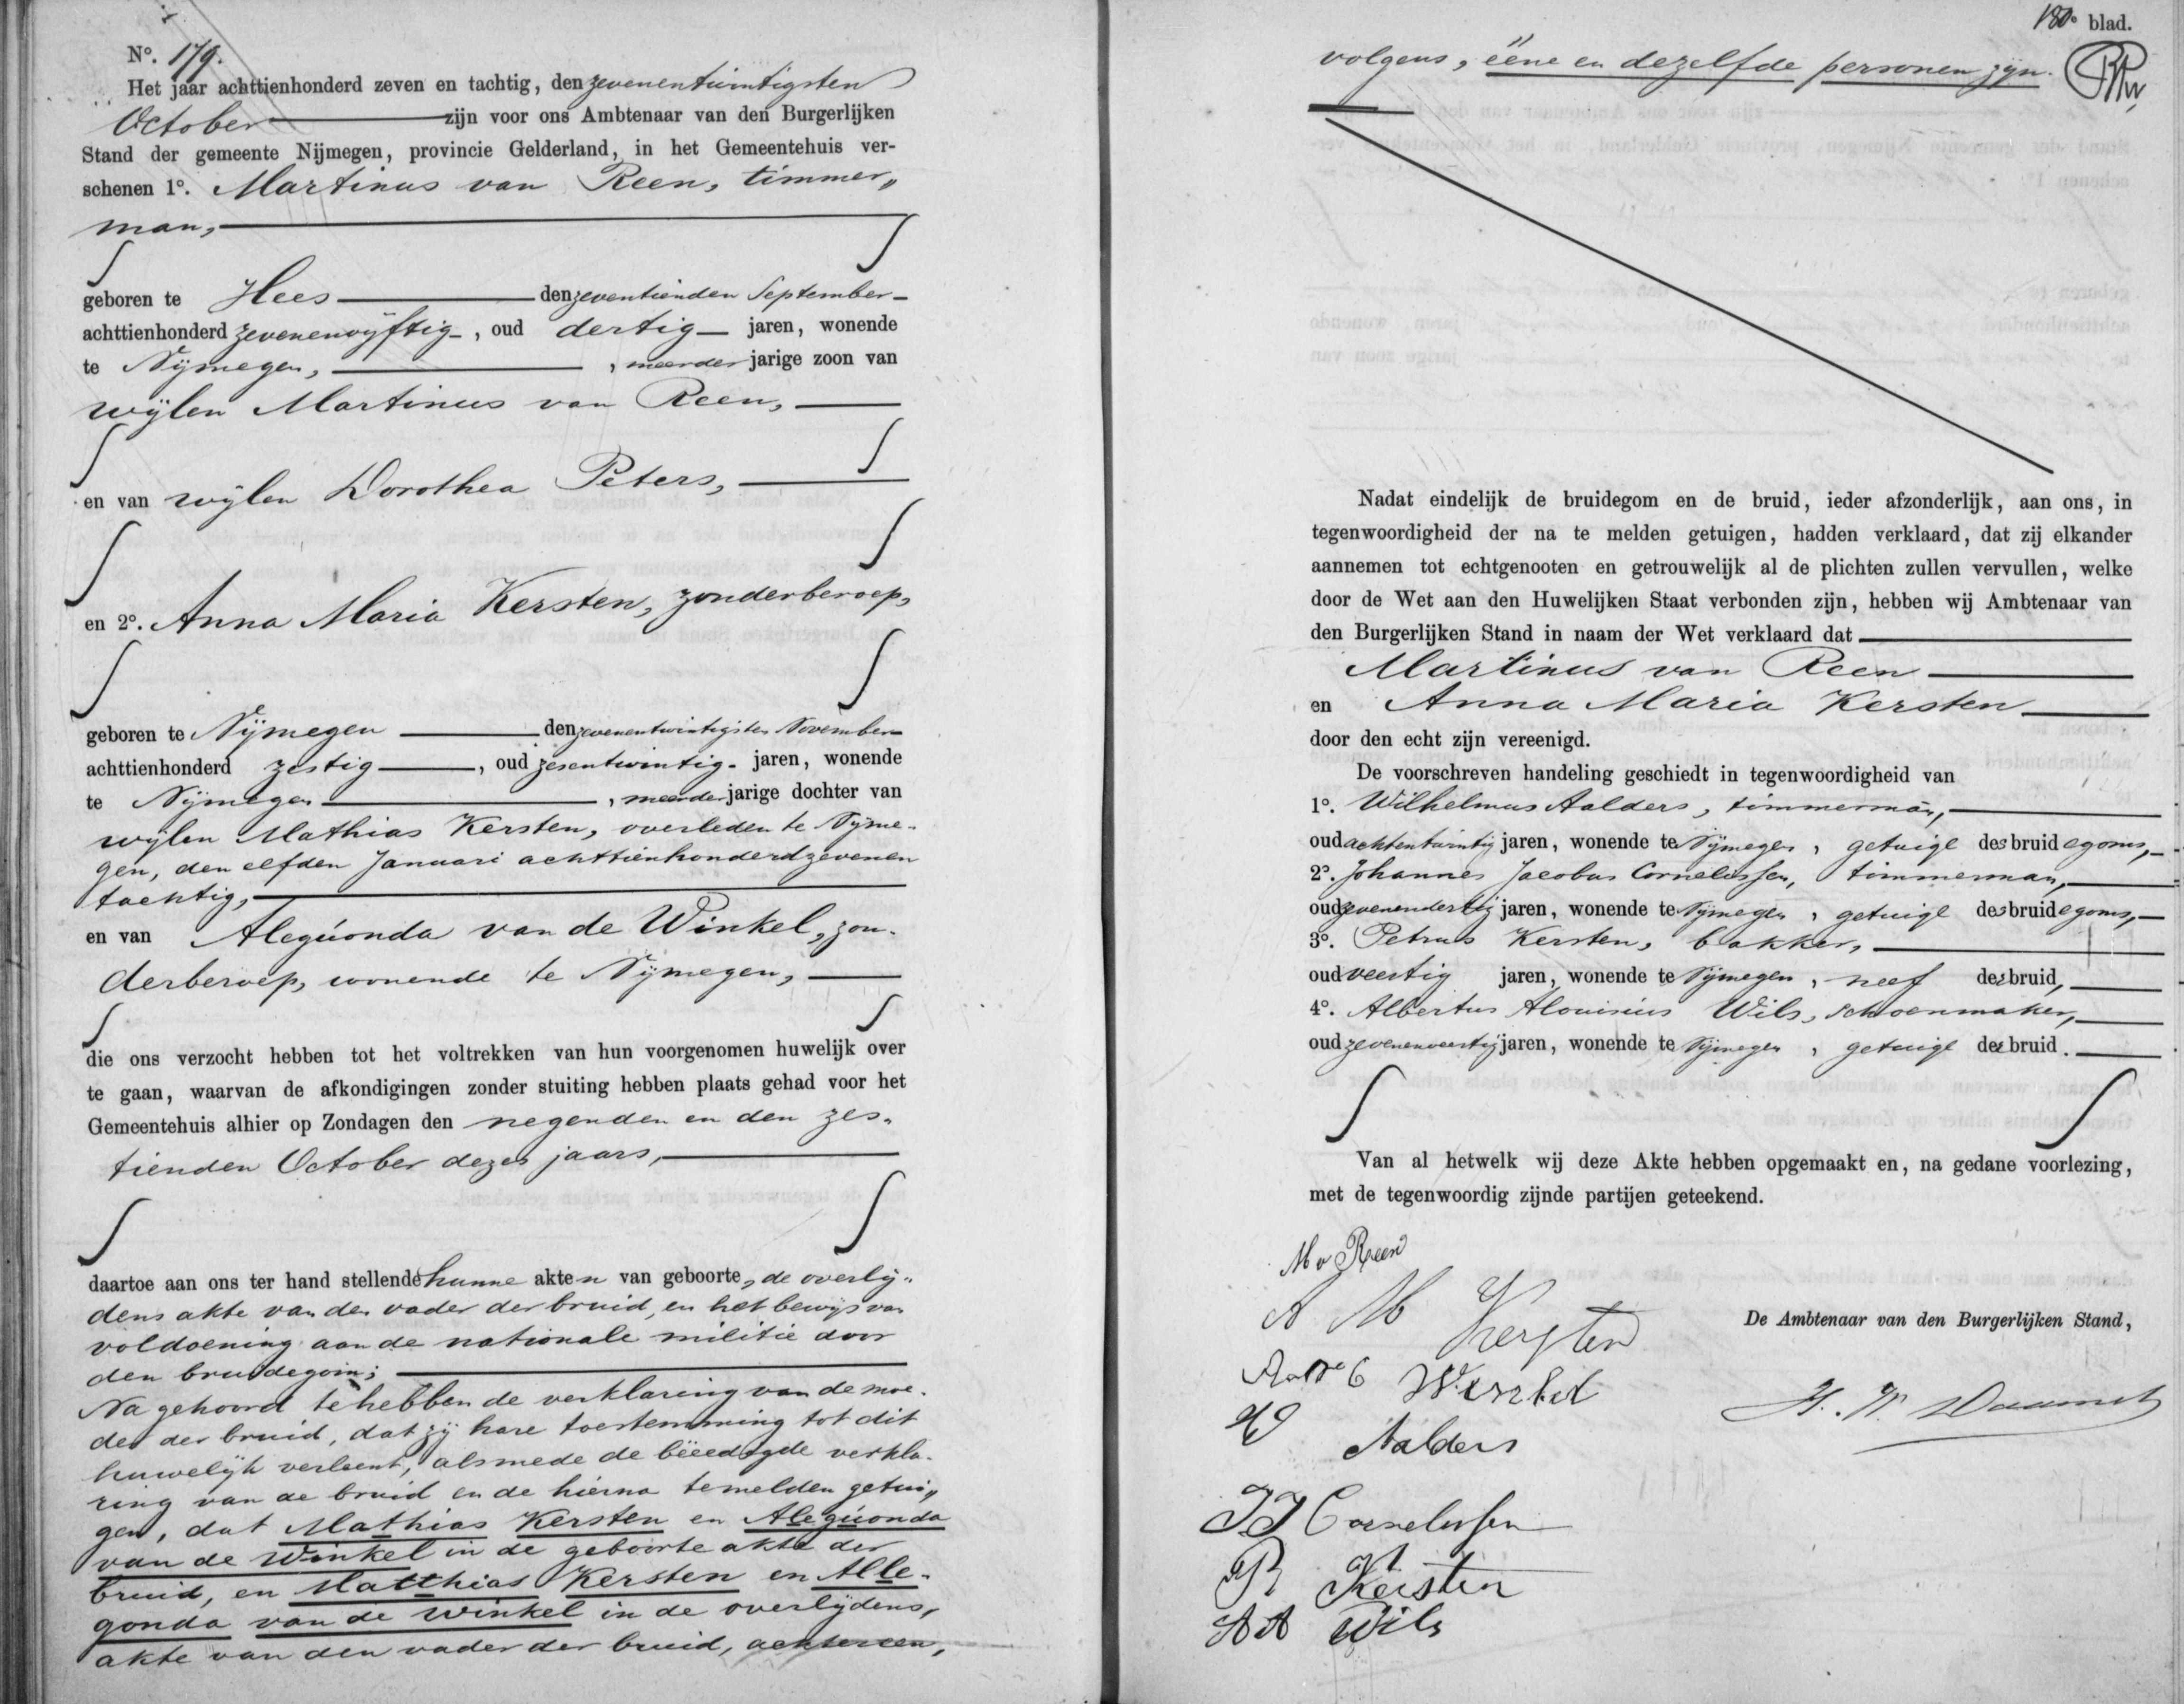 Nº. 179.
Het jaar achttienhonderd zeven en tachtig, den zevenentwintigsten
October zijn voor ons Ambtenaar van den Burgerlijken
Stand der gemeente Nijmegen, provincie Gelderland, in het Gemeentehuis ver-
schenen 1º. Martinus van Reen, timmer„
man,
geboren te Hees den zeventienden September
achttienhonderd zevenenvijftig, oud dertig jaren, wonende
te Nijmegen, , meerder jarige zoon van
wijlen Martinus van Reen,
en van wijlen Dorothea Peters,
en 2º. Anna Maria Kersten, zonder beroep,
geboren te Nijmegen den zevenentwintigsten November
achttienhonderd zestig, oud zesentwintig jaren, wonende
te Nijmegen , meerder jarige dochter van
wijlen Mathias Kersten, overleden te Nijme-
gen, den elfden Januari achttienhonderdzevenen
tachtig,
en van Alegúonda van de Winkel, zon-
derberoep, wonende te Nijmegen,
die ons verzocht hebben tot het voltrekken van hun voorgenomen huwelijk over
te gaan, waarvan de afkondigingen zonder stuiting hebben plaats gehad voor het
Gemeentehuis alhier op Zondagen den negenden en den zes-
tienden October dezes jaars,
daartoe aan ons ter hand stellende hunne akten van geboorte, de overlij-
dens akte van den vader der bruid, en het bewijs van
voldoening aan de nationale militie door
den bruidegom;
Na gehoord te hebben de verklaring van de moe-
der der bruid, dat zij hare toestemming tot dit
huwelijk verleent, alsmede de bëeedigde verkla-
ring van de bruid en de hierna temelden getui„
gen, dat Mathias Kersten en Alegúonda
van de Winkel in de geboorte akte der
bruid, en Matthias Kersten en Alle-
gonda van de Winkel in de overlijdens,
akte van den vader der bruid, achtereen,
180e blad.
volgens, ééne en dezelfde personen zijn.
Nadat eindelijk de bruidegom en de bruid, ieder afzonderlijk, aan ons, in
tegenwoordigheid der na te melden getuigen, hadden verklaard, dat zij elkander
aannemen tot echtgenooten en getrouwelijk al de plichten zullen vervullen, welke
door de Wet aan den Huwelijken Staat verbonden zijn, hebben wij Ambtenaar van
den Burgerlijken Stand in naam der Wet verklaard dat
Martinus van Reen
en Anna Maria Kersten
door den echt zijn vereenigd.
De voorschreven handeling geschiedt in tegenwoordigheid van
1º. Wilhelmus Aalders, timmerman,
oud achtentwintig jaren, wonende te Nijmegen, getuige des bruidegoms,
2º. Johannes Jacobus Cornelissen, timmerman,
oud zevenendertig jaren, wonende te Nijmegen, getuige des bruidegoms,
3º. Petrus Kersten, bakker,
oud veertig jaren, wonende te Nijmegen, neef der bruid,
4º. Albertus Alouisius Wils, schoenmaker,
oud zevenenveertig jaren, wonende te Nijmegen, getuige der bruid.
Van al hetwelk wij deze Akte hebben opgemaakt en, na gedane voorlezing,
met de tegenwoordig zijnde partijen geteekend.
M v Reen
A M Kersten
De Ambtenaar van den Burgerlijken Stand,
Aalders
JJ Cornelissen
P Kersten
AA Wils